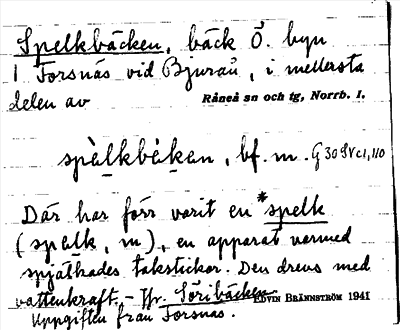 Spelkbäcken, bäck Ö. byn
i Forsnäs vid Bjuråå, i mellersta
delen av
Råneå sn och tg, Norrb. l.
spèl̥kbèk̥en, bf. m. G 30 SV c1, 110
Där har förr varit en *spelk
(spèl̥k, m), en apparat varmed
spjälkades takstickor. Den drevs med
vattenkraft. - Jfr. Söribäcken
EDVIN BRÄNNSTRÖM 1941
Uppgiften från Forsnäs.